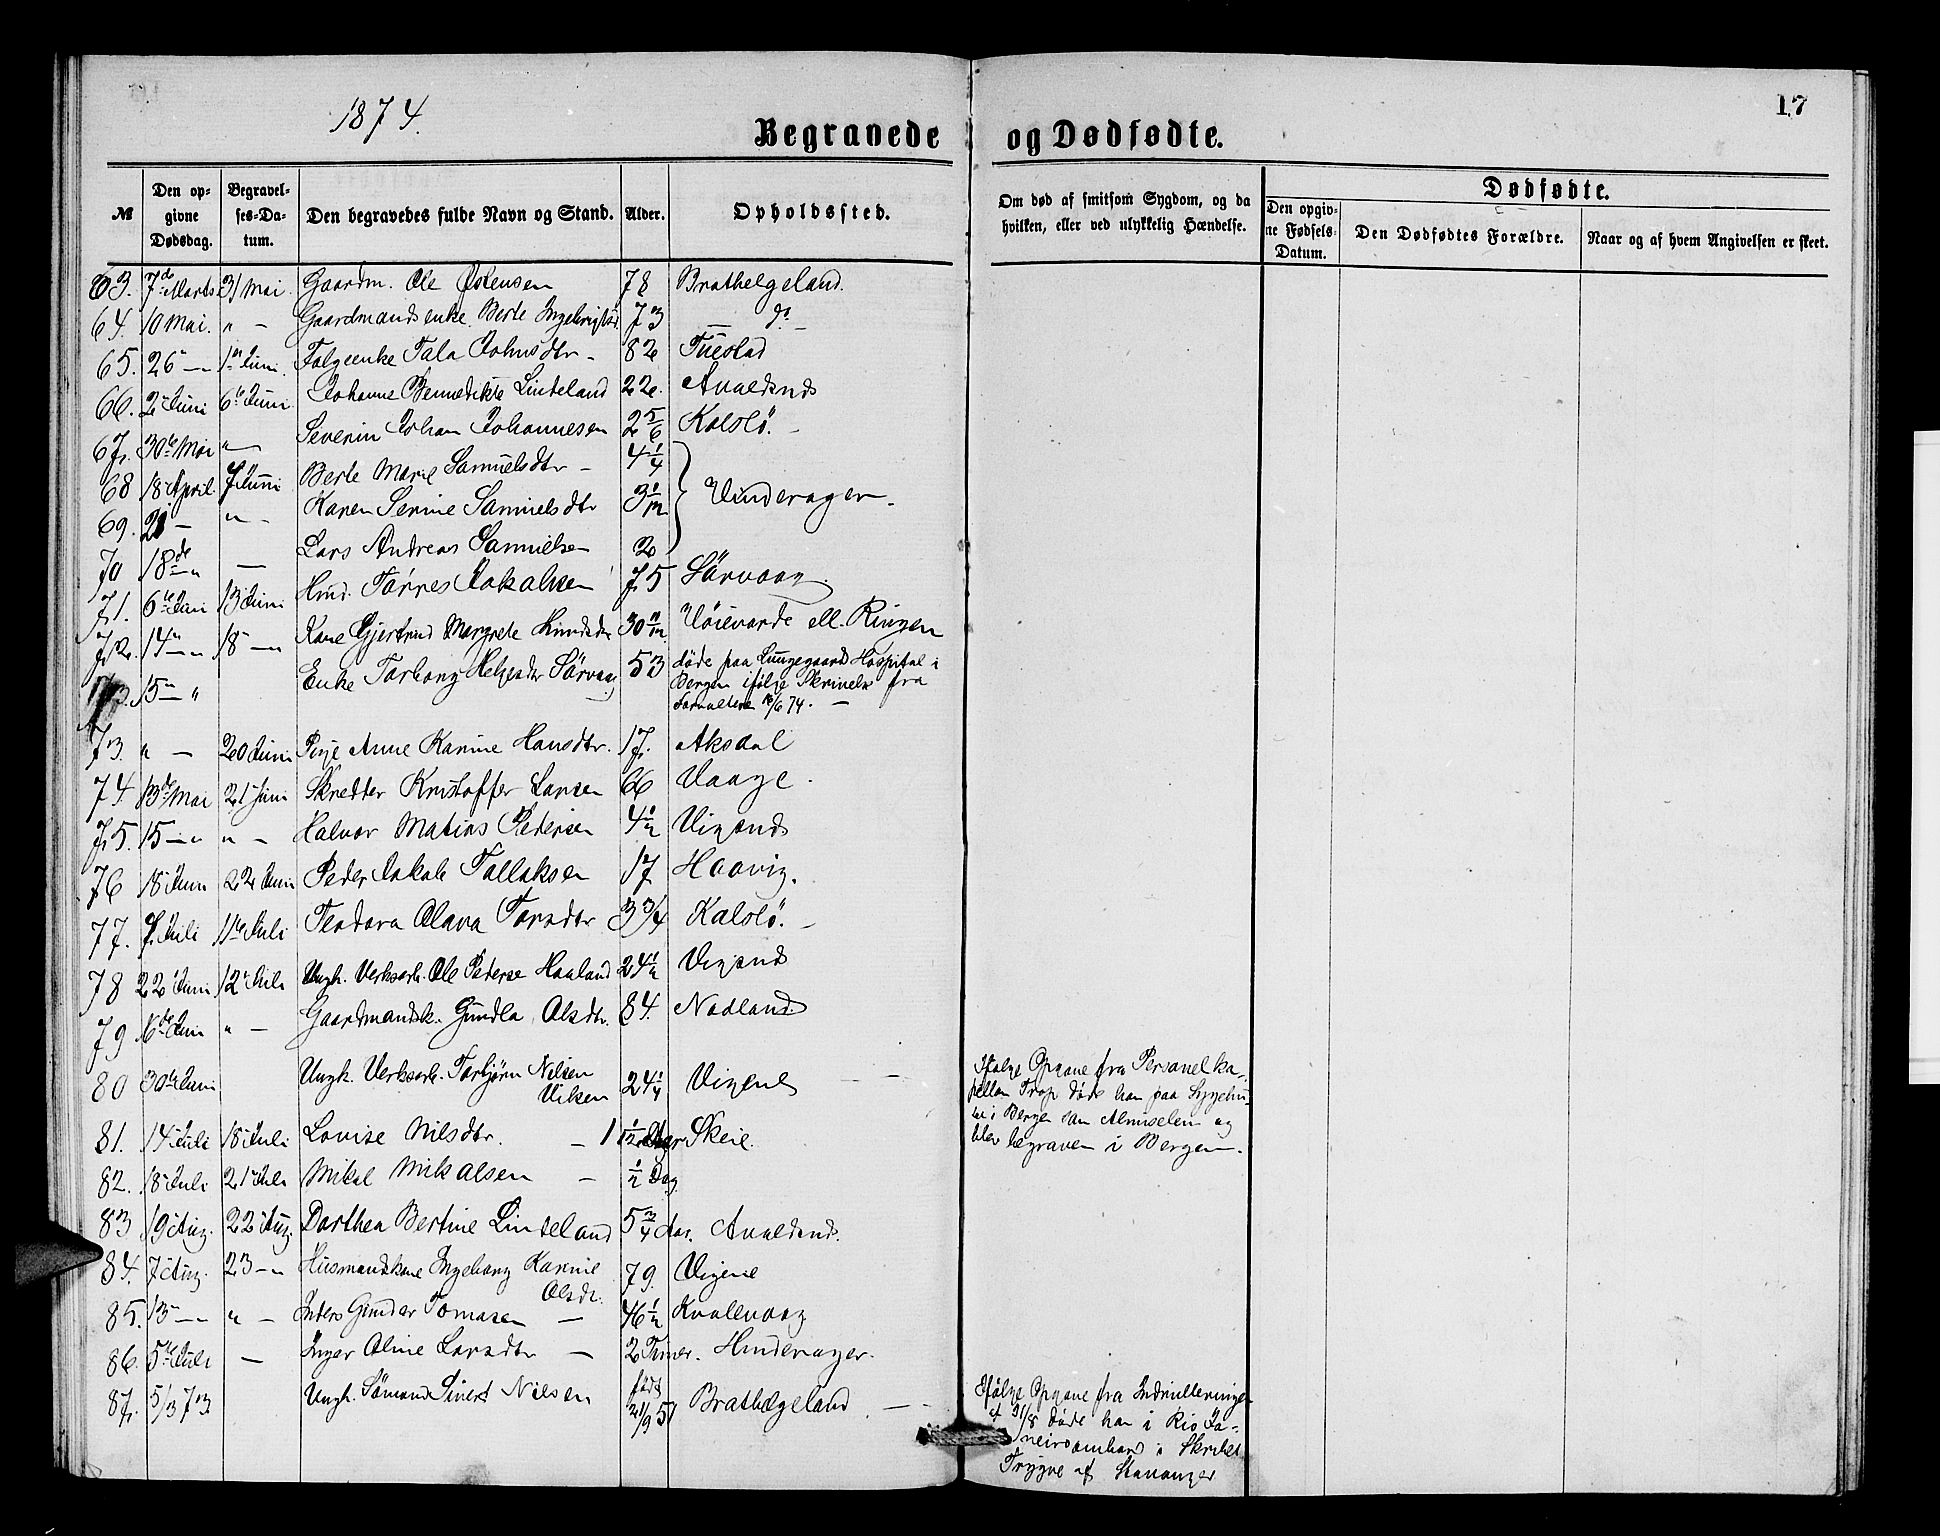 1874.
17
Begravede og Dødfødte.
№ | Den op-givne Dødsdag. | Begravel-ses-Da-tum. | Den begravedes fulde Navn og Stand. | Alder. | Opholdssted. | Om død af smitsom Sygdom, og da hvilken, eller ved ulykkelig Hændelse. | Dødfødte.
Den opgiv-ne Fødsels-Datum. | Den Dødfødtes Forældre. | Naar og af hvem Angivelsen er skeet.
63. 7de Marts 31 Mai. Gaardm. Ole Østensen 78 Brathelgeland.
64. 10 Mai. " — Gaardmandsenke Berte 73 do
65. 26 — 1ste Juni. Tala Johnsdtr. 82 Tuestad
66. 2 Juni 6te Juni Johanne Bennedikte Lindeland 22. Avaldsnes
67. 30te Mai " — Severin Johan Johannesen 2 5/6 Kolstö.
68 18 April. 7 Juni Berte Marie Samuelsdtr — 4 1/4
69. 21 — " — Karen Serine Samuelsdtr 3 Vinderager.
70 18de — " — Lars Andreas Samuelsen 2
71. 6te Juni 13 Juni Tørres Jakobsen 75 Sörvaag.
72. 14 — " 18 — " Kone Gjertrud Margrete Knudsdtr 30 Høievarde ell. Ringen
73. 15 — " Enke Torborg Helgesdtr Sörvaag 53 döde paa Lungegaards Hospital i
Bergen ifölge Skrivelse fra
16/6 74. —
73. " — 20 Juni Pige Anne Karine Hansdtr. 17. Aksdal
74. 13de Mai 21 Juni Skredder Kristoffer Larsen 66 Vaage.
75. 15 — " " — Halvor Matias Pedersen 4 1/2
76 18 Juni 22 Juni Peder Jakob Tollaksen 17 Haavig.
77. 7 Juli 11te Juli Teodora Olava Torsdtr 3 3/4 Kolstö. —
78 22 Juni 12 Juli Ungk. Verksarb. Ole Pederse Haaland 24 1/2
79 16de Juni " — Gaardmandsk. Gundla Olsdtr. 84. Nodland
80 30te Juni Ungk. Verksarb. Torbjørn Nilsen
Viken 24 1/4 Vigene — — Ifølge Opgave fra Personelka-
pellan Trop döde han paa Sygehu-
set i Bergen og
blev begraven i Bergen.
81. 14 Juli 18 Juli Lovise Nilsdtr. — 1 Skeie.
82. 18 Juli 21 Juli Mikal Mikalsen — 1/2 Dag
83 19 Aug. 22 Aug. Dorthea Bertine Lindeland 5 3/4 Aar. Avaldsnes.
84. 7 Aug. 23 — " Husmandskone Ingeborg Karine
Olsdtr. 79. Vigene
85. 13 — " " — Inders Gunder Tomasen — 46 1/2 Kvalevaag
86. 5te Juli — Inger Oline Larsdtr — 2 Timer. Hinderager.
87. 5/3 73 Ungk. Sömand Sivert Nilsen födt
21/9 51 Brathelgeland — — Ifølge Opgave fra Indrulleringen
af 31/8 döde han i Rio Ja-
neiro ombord i Skibet
Trygve af Stavanger